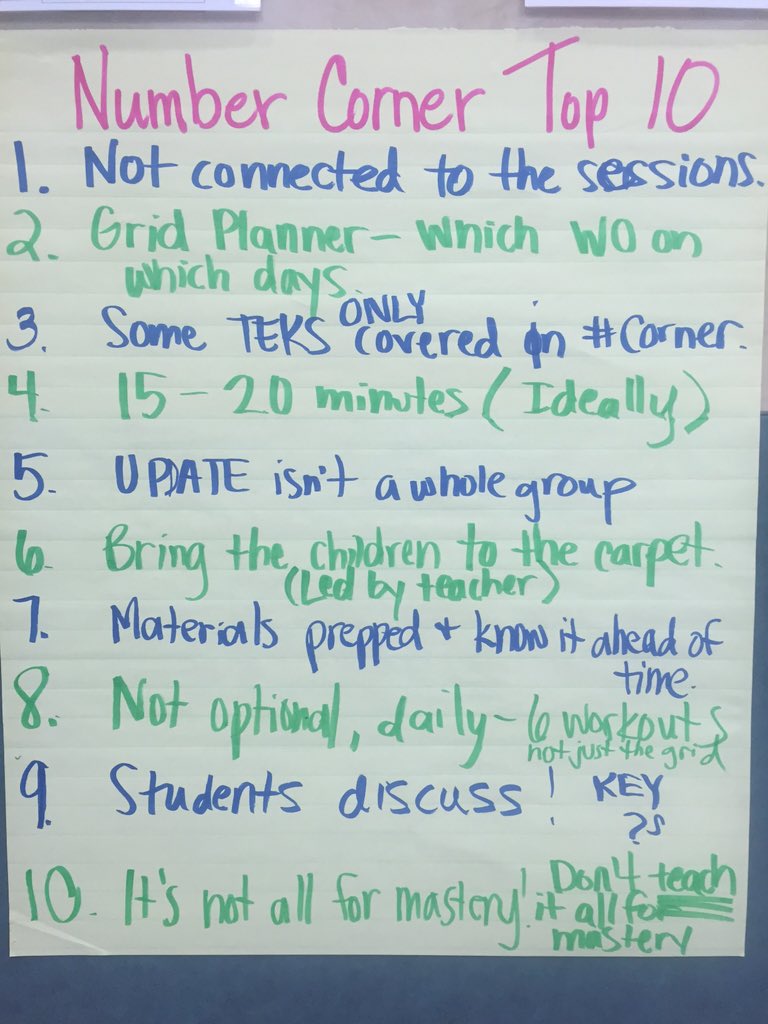 Number Corner Top 10
1. Not connected to the sessions.
2. Grid Planner - which WO on
which days.
3. Some TEKS ONLY covered in #Corner.
4. 15 - 20 minutes (Ideally)
5. UPDATE isn't a whole group
6. Bring the children to the carpet.
(Led by teacher)
7. Materials prepped + know it ahead of
time.
8. Not optional, daily - 6 workouts
not just the grid
9. Students discuss! KEY
?s
10. It's not all for mastery! Don't teach
it all for
mastery